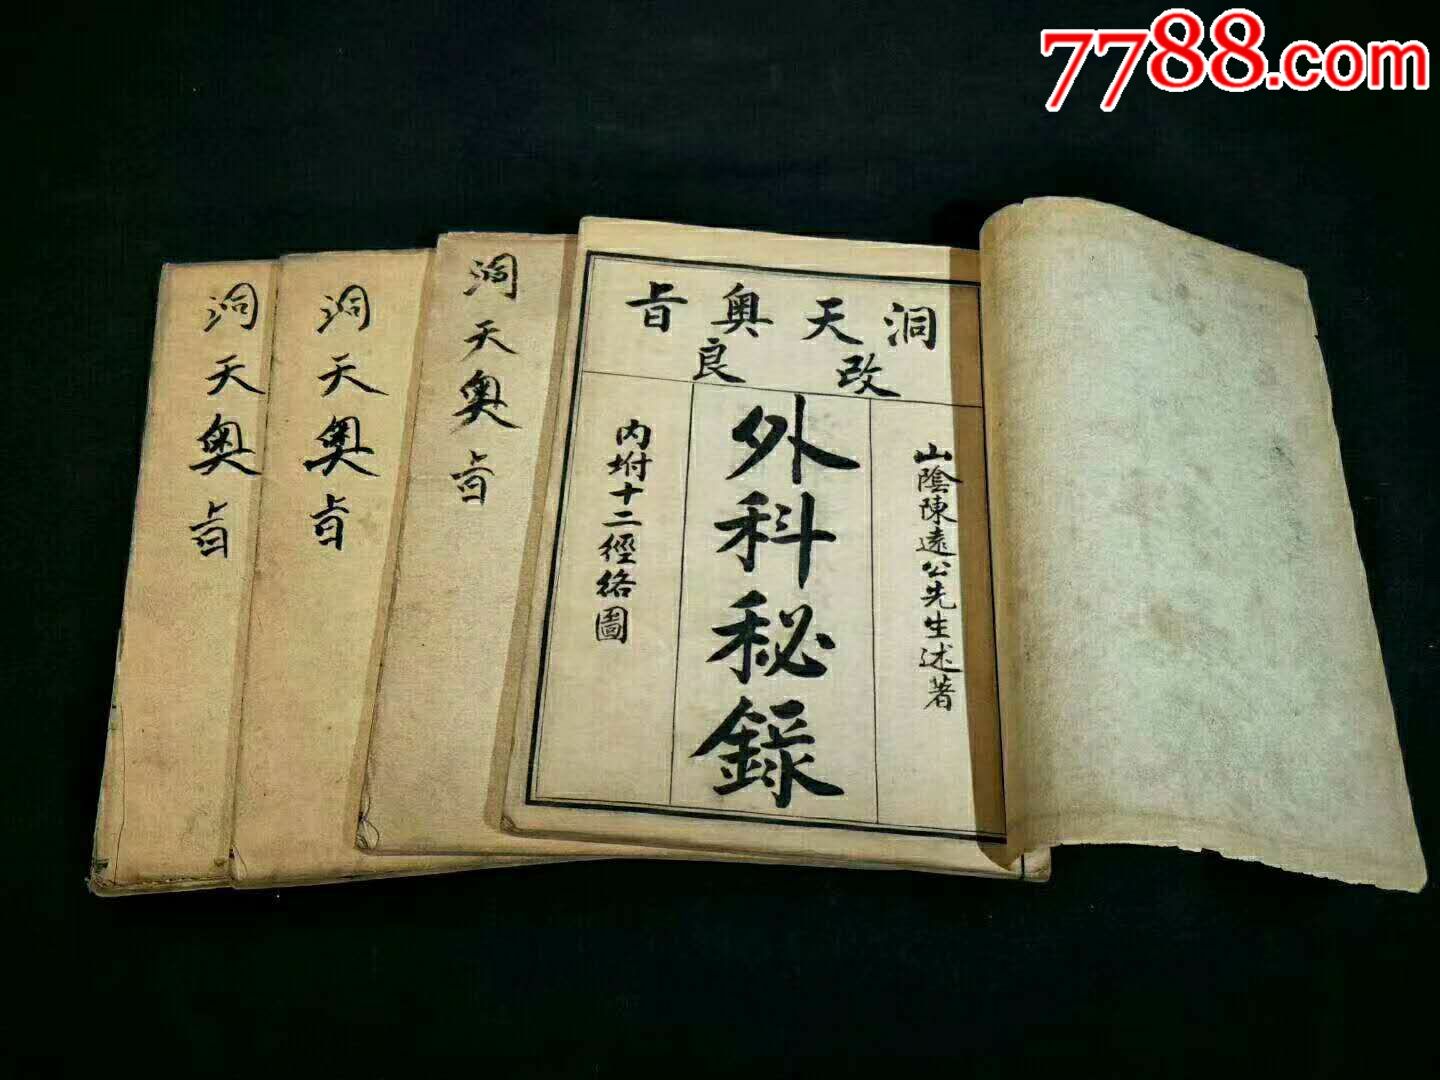 7788.com
洞天奥旨
改良
山陰陳遠公先生述著
外科秘錄
内坿十二經络圖
洞天奥旨
洞天奥旨
洞天奥旨